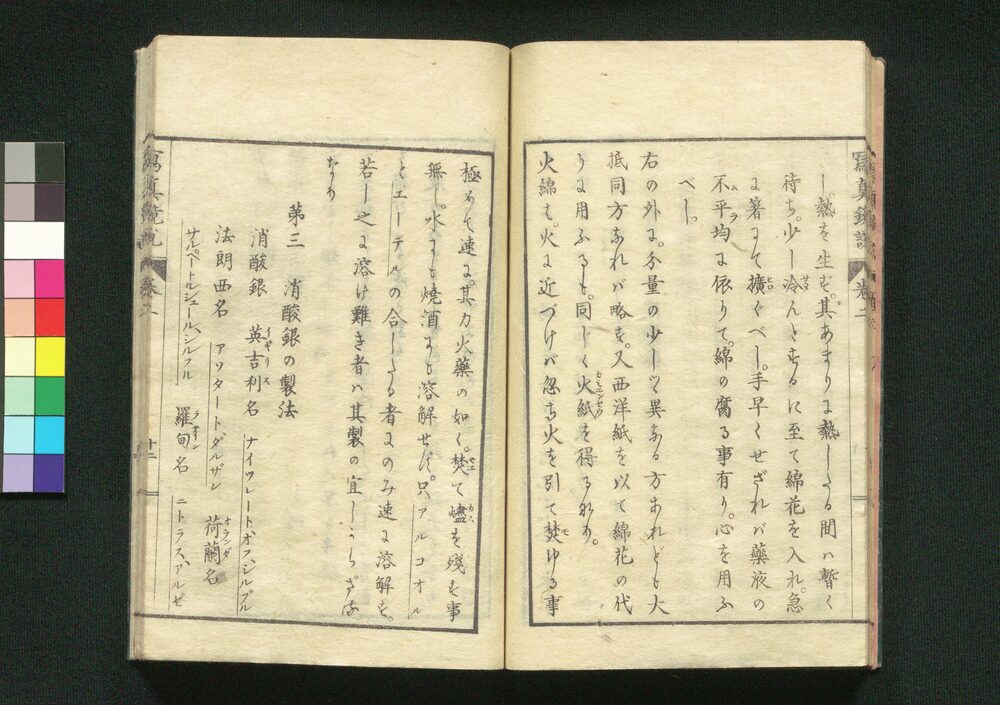 し熱を生ず。其あまりに熱したる間ハ暫く
待ち。少し冷んとするに至て綿花を入れ。急
に箸にて擴ぐべし。手早くせざれバ藥液の
不平均に依りて。綿の腐る事有り。心を用ふ
べし。
右の外に。分量の少しツ異なる方あれども大
抵同方なれバ略す。又西洋紙を以て綿花の代
りに用ふると。同じく火紙を得るなり。
火綿も。火に近づけバ忽ち火を引て焚ゆる事
極めて速に。其力火藥の如く。焚て燼を殘す事
無し。水にも燒酒にも溶解せず。只アルコオル
とエーテルの合したる者にのみ速に溶解す。
若し之に溶け難き者ハ其製の宜しからざる
なり
第三 消酸銀の製法
消酸銀 英吉利名 ナイツレートオフ、シルブル
法朗西名 アソタートダルザン 荷蘭名
サルペートルシュール、シルフル 羅甸名 ニトラス、アルゼ
寫真鏡説 卷二 十二